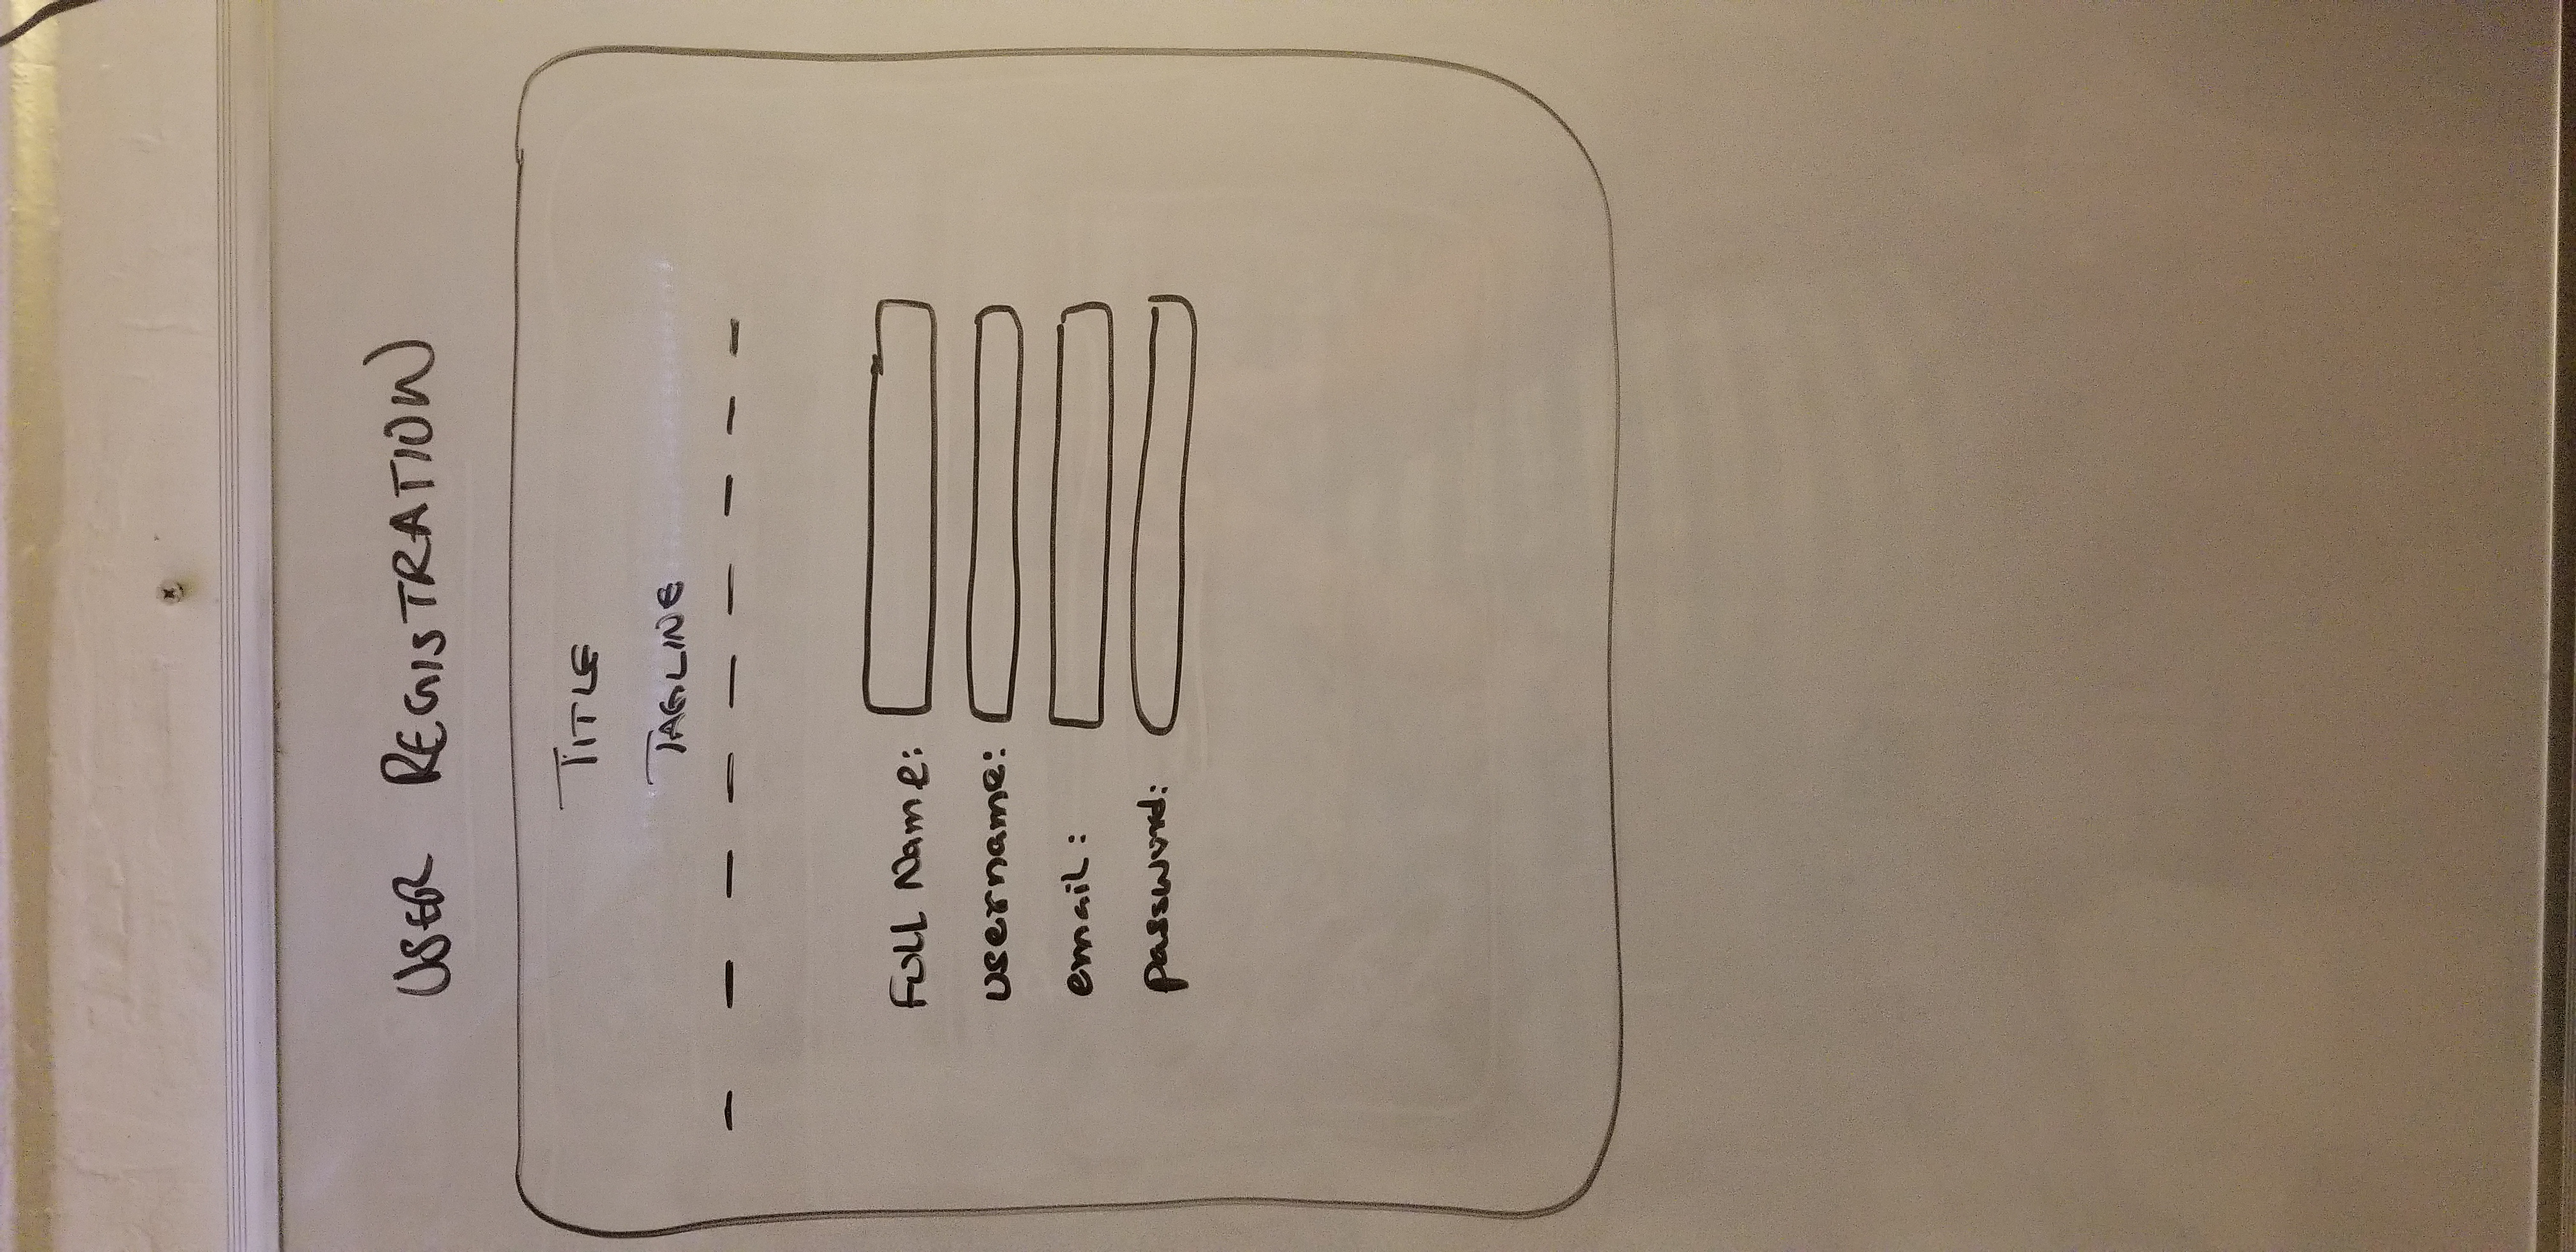 USER REGISTRATION
TITLE
TAGLINE
Full Name:
username:
email:
password: